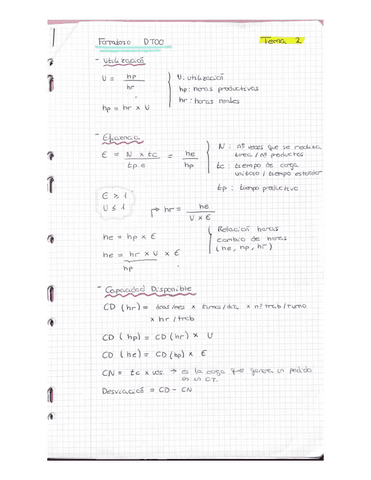 Formulas DTOO
Tema 2
- Utilización
U = hp / hr
U: utilización
hp: horas productivas
hr: horas reales
hp = hr × U
- Eficiencia
E = N × tc / tp = he / hp
N: nº veces que se realiza
tarea / nº productos
tc: tiempo de carga
unitario / tiempo estándar
tp: tiempo productivo
E ≥ 1
U ≤ 1
→ hr = he / U × E
he = hp × E
he = hr × U × E
hp
Relación horas
cambio de horas
(he, hp, hr)
- Capacidad Disponible
CD (hr) = días/mes × turnos/día × nº trab/turno
× hr/trab
CD (hp) = CD (hr) × U
CD (he) = CD (hp) × E
CN = tc × uds. → es la carga que genera un pedido
en un CT.
Desviación = CD - CN